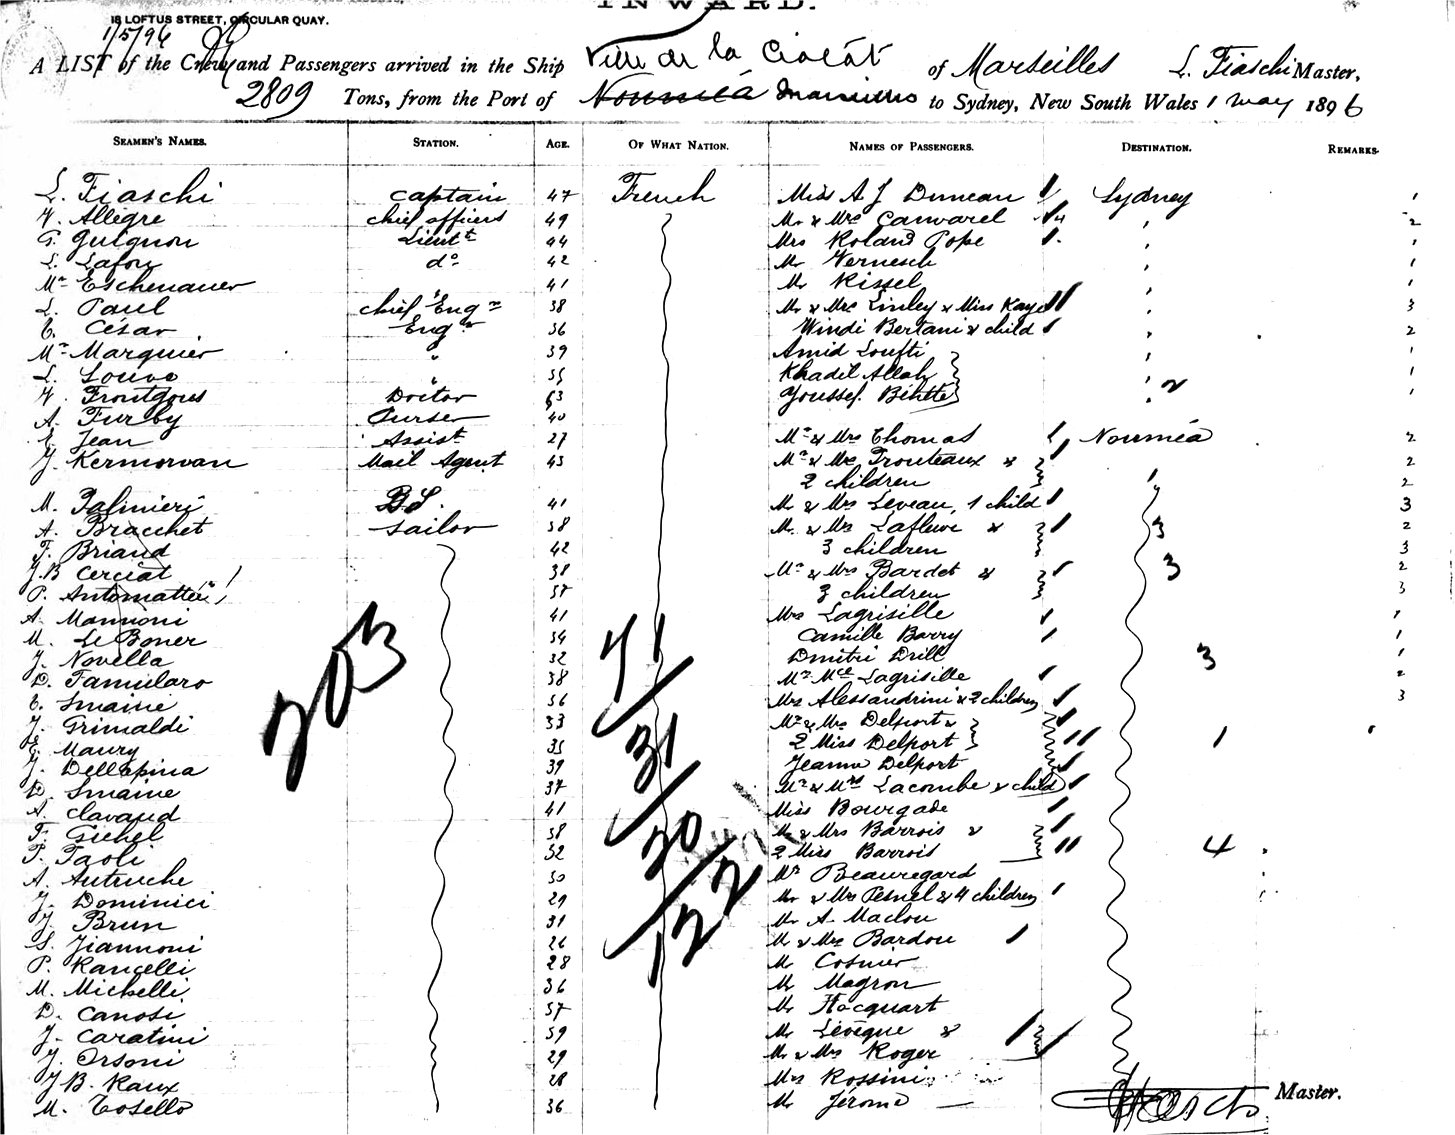 INWARD.
18 LOFTUS STREET, CIRCULAR QUAY.
1/5/96
A LIST of the Crew and Passengers arrived in the Ship Ville de la Ciotat of Marseilles L. Fiaschi Master,
2809 Tons, from the Port of Nouméa Marseilles to Sydney, New South Wales 1 May 1896
SEAMEN'S NAMES. STATION. AGE. OF WHAT NATION. NAMES OF PASSENGERS. DESTINATION. REMARKS.
L. Fiaschi captain 47 French Miss A J Duncan Sydney 1
Allègre chief officer 49 Mr & Mrs Canvarel 2
G. Guignon Lieutt 44 Mrs Roland Pope 1
L. Lafon do 42 Mr Vernesch 1
Mce Eschenauer 41 Mr Rissel 1
L. Paul chief Engr 38 Mr & Mrs Linley & Miss Kaye 3
C. César Engr 36 Windi Bertani & child 2
Mce Marquier " 39 Amid Loufti 1
L. Louve " 35 Khadil Allah 1
Frontgous Doctor 53 Youssef Bihitte 2 1
A. Furby Purser 40
E. Jean Assist 27 Mr & Mrs Thomas Nouméa 2
J. Kermorvan Mail Agent 43 Mr & Mrs Trouteaux & 2
2 children 2
M. Palmieri B.S. 41 Mr & Mrs Leveau, 1 child 3
A. Bracchet sailor 38 Mr & Mrs Lafleur & 3 2
F. Briand 42 3 children 3
J.B Cerciat 38 Mr & Mrs Bardet & 3 2
P. Antomattei 37 3 children 3
A. Mannoni 41 Mrs Lagrisille 1
M. Le Boner 34 Camille Barry 1
J. Novella 32 Dmitri Drill 3 1
D. Famularo 38 Mr Mce Lagrisille 2
C. Smaine 56 Mrs Alessandrini & 2 children 3
J. Grimaldi 33 Mr & Mrs Delport &
E. Maury 35 2 Miss Delport 1
J. Dellapina 39 Jeanne Delport
D. Smaine 37 Mr & Mrs Lacombe & child
A. Clavaud 41 Miss Bourgade
F. Guihel 38 Mr & Mrs Barrois &
P. Paoli 32 2 Miss Barrois 4
A. Autruche 30 Mr Beauregard
J. Dominici 29 Mr & Mrs Pesnel & 4 children
J. Brun 31 Mr A. Maclou
S. Giannoni 26 Mr & Mrs Bardou
P. Rancelli 28 Mr Cosnier
M. Michelli 36 Mr Magron
D. Canosi 37 Mr Hacquart
J. Caratini 39 Mr Levèque &
J. Orsoni 29 Mr & Mrs Roger
J B. Raux 28 Mrs Rossini
M. Tosello 36 Mr Jerome
203
71
31
20
122
Fiaschi Master.